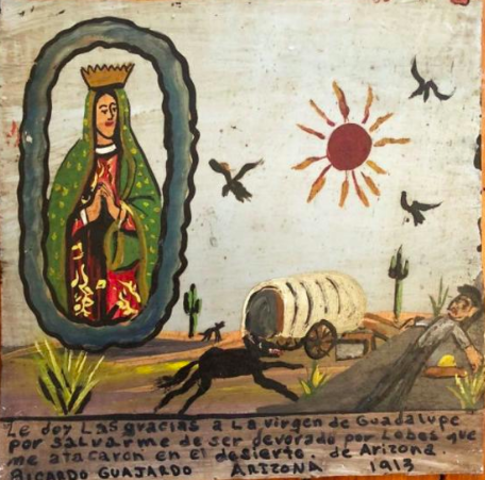 Le doy Las gracias a La virgen de Guadalupe
por salvarme de ser devorado por Lobos que
me atacaron en el desierto. de Arizona.
RICARDO GUAJARDO ARIZONA 1913